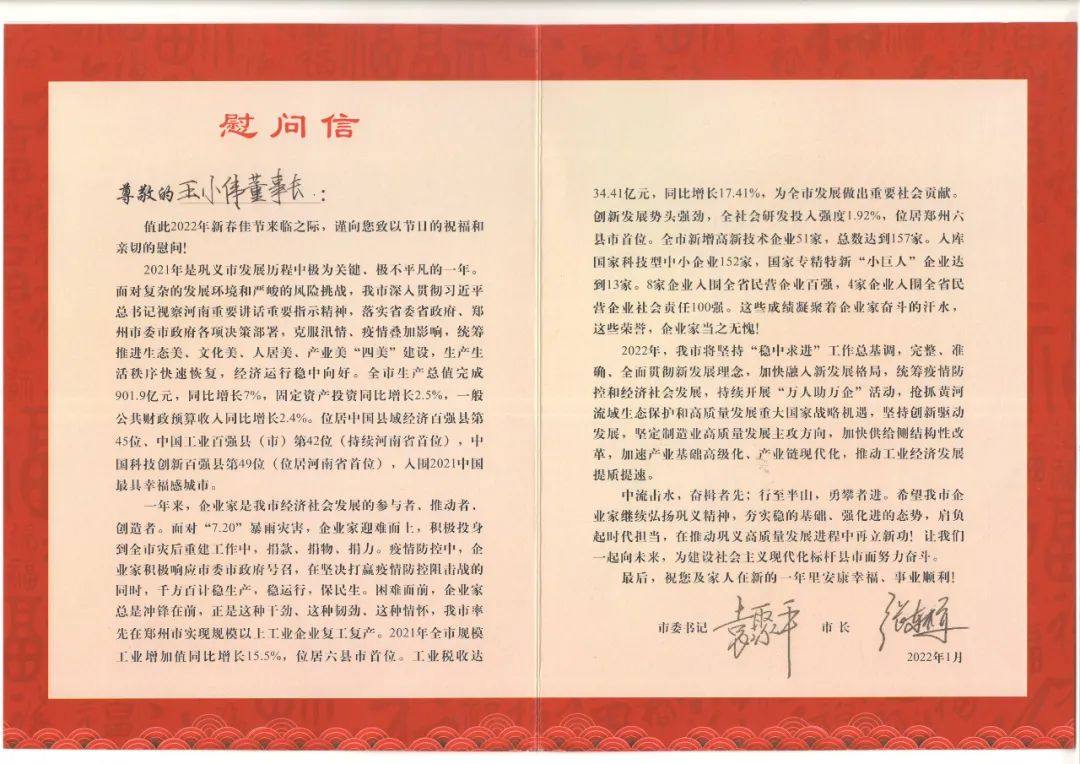 慰问信
尊敬的王小伟董事长：
值此2022年新春佳节来临之际，谨向您致以节日的祝福和
亲切的慰问！
2021年是巩义市发展历程中极为关键、极不平凡的一年。
面对复杂的发展环境和严峻的风险挑战，我市深入贯彻习近平
总书记视察河南重要讲话重要指示精神，落实省委省政府、郑
州市委市政府各项决策部署，克服汛情、疫情叠加影响，统筹
推进生态美、文化美、人居美、产业美“四美”建设，生产生
活秩序快速恢复，经济运行稳中向好。全市生产总值完成
901.9亿元，同比增长7%，固定资产投资同比增长2.5%，一般
公共财政预算收入同比增长2.4%。位居中国县域经济百强县第
45位、中国工业百强县（市）第42位（持续河南省首位），中
国科技创新百强县第49位（位居河南省首位），入围2021中国
最具幸福感城市。
一年来，企业家是我市经济社会发展的参与者、推动者、
创造者。面对“7.20”暴雨灾害，企业家迎难而上，积极投身
到全市灾后重建工作中，捐款、捐物、捐力。疫情防控中，企
业家积极响应市委市政府号召，在坚决打赢疫情防控阻击战的
同时，千方百计稳生产，稳运行，保民生。困难面前，企业家
总是冲锋在前，正是这种干劲、这种韧劲、这种情怀，我市率
先在郑州市实现规模以上工业企业复工复产。2021年全市规模
工业增加值同比增长15.5%，位居六县市首位。工业税收达
34.41亿元，同比增长17.41%，为全市发展做出重要社会贡献。
创新发展势头强劲，全社会研发投入强度1.92%，位居郑州六
县市首位。全市新增高新技术企业51家，总数达到157家。入库
国家科技型中小企业152家，国家专精特新“小巨人”企业达
到13家。8家企业入围全省民营企业百强，4家企业入围全省民
营企业社会责任100强。这些成绩凝聚着企业家奋斗的汗水，
这些荣誉，企业家当之无愧！
2022年，我市将坚持“稳中求进”工作总基调，完整、准
确、全面贯彻新发展理念，加快融入新发展格局，统筹疫情防
控和经济社会发展，持续开展“万人助万企”活动，抢抓黄河
流域生态保护和高质量发展重大国家战略机遇，坚持创新驱动
发展，坚定制造业高质量发展主攻方向，加快供给侧结构性改
革，加速产业基础高级化、产业链现代化，推动工业经济发展
提质提速。
中流击水，奋楫者先；行至半山，勇攀者进。希望我市企
业家继续弘扬巩义精神，夯实稳的基础、强化进的态势，肩负
起时代担当，在推动巩义高质量发展进程中再立新功！让我们
一起向未来，为建设社会主义现代化标杆县市而努力奋斗。
最后，祝您及家人在新的一年里安康幸福、事业顺利！
市委书记 袁聚平 市 长
2022年1月